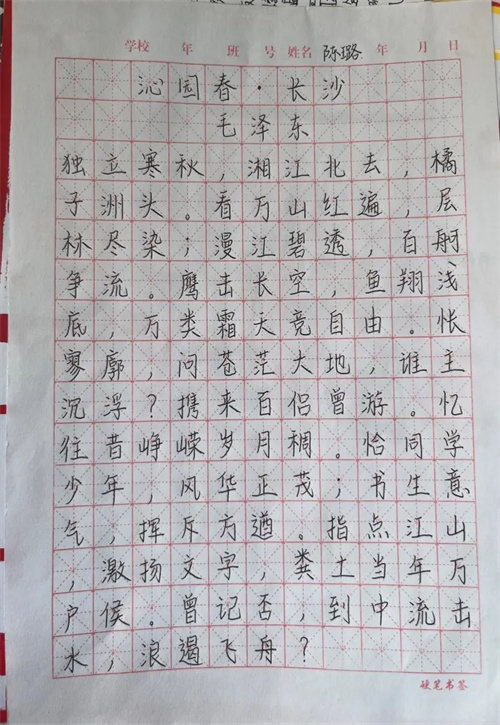 学校 年 班 号 姓名 陈璐 年 月 日
沁园春·长沙
毛泽东
独立寒秋，湘江北去，橘
子洲头。看万山红遍，层
林尽染；漫江碧透，百舸
争流。鹰击长空，鱼翔浅
底，万类霜天竞自由。怅
寥廓，问苍茫大地，谁主
沉浮？携来百侣曾游。忆
往昔峥嵘岁月稠。恰同学
少年，风华正茂；书生意
气，挥斥方遒。指点江山
，激扬文字，粪土当年万
户侯。曾记否，到中流击
水，浪遏飞舟？
硬笔书签